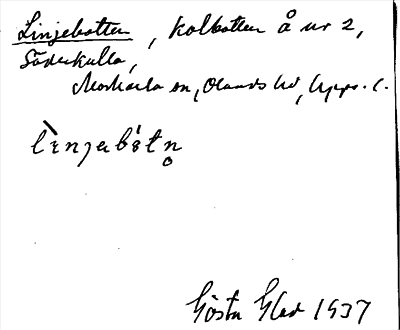 Linjebotten, kolbotten å nr 2,
Söderkulla,
Morkarla sn, Olands hd, Upps. l.
lìnjebótn̥
Gösta Glad 1937